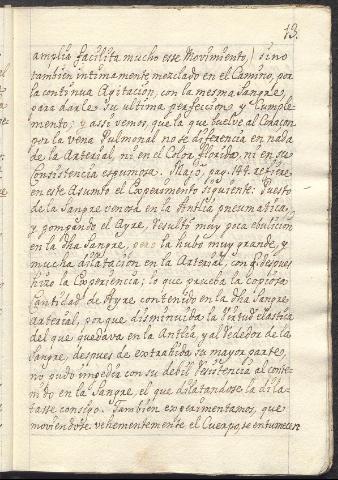 13.
amplia facilita mucho esse Movimiento,) sino
tambien intimamente mezclado en el Camino, por
la continua Agitacion, con la mesma Sangre,
para darle su ultima perfeccion, y Cumple-
mento; y assi vemos, que la que buelve al Corazon
por la vena Pulmonal no se diferencia en nada
de la Arterial, ni en el Color florido, ni en su
Consistencia espumosa. pag. 144. refiere
en este Asumto el Experimento siguiente: Puesto
de la Sangre venosa en la Antlia pneumatica,
y pompando el Ayre, resultò muy poca ebulicion
en la dha Sangre, pero la hubo muy grande, y
mucha dilatacion en la Arterial, con q. despues
hizo la Experiencia; lo que prueba la copiosa
Cantidad de Ayre contenido en la dha Sangre
arterial, porque disminuida la virtud elastica
del que quedava en la Antlia, y al rededor de la
Sangre, despues de extrahida su mayor parte,
no pudo impedir con su debil resistencia al conte-
nido en la Sangre, el que dilatandose la dila-
tasse consigo. Tambien experimentamos, que
moviendose vehementemente el Cuerpo, se entumecen